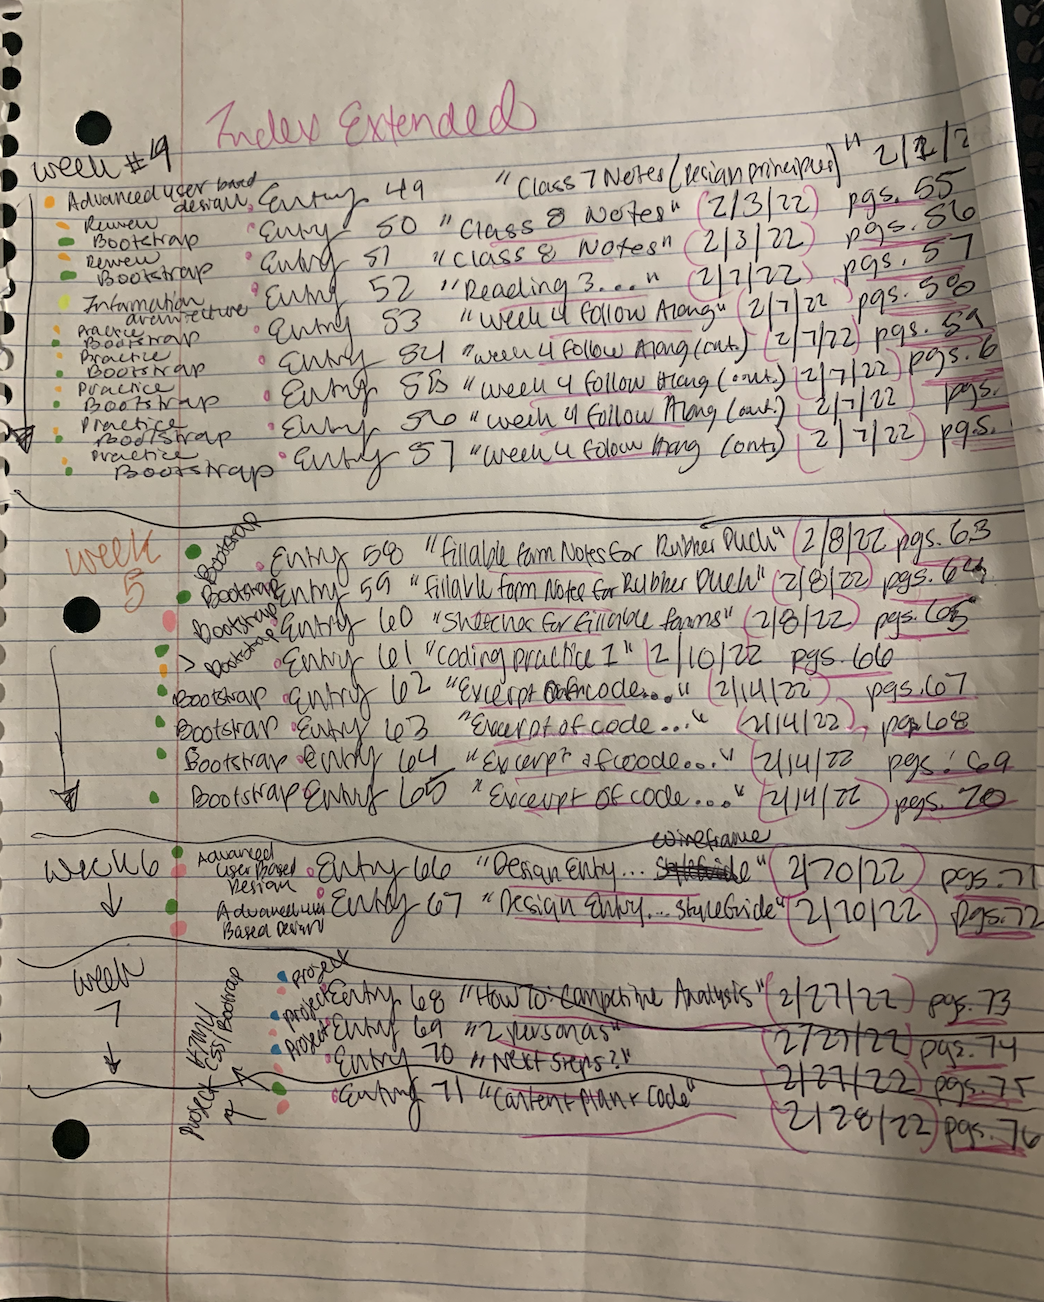 Index Extended
Week #4
Advanced user based design Entry 49 "Class 7 Notes (Design principles)" 2/1/2
Review Bootstrap Entry 50 "Class 8 Notes" (2/3/22) pgs. 55
Review Bootstrap Entry 51 "Class 8 Notes" (2/3/22) pgs. 56
Information architecture Entry 52 "Reading 3..." (2/7/22) pgs. 57
Practice Bootstrap Entry 53 "Week 4 Follow Along" (2/7/22) pgs. 58
Practice Bootstrap Entry 54 "Week 4 Follow Along (cont.) (2/7/22) pgs. 59
Practice Bootstrap Entry 55 "Week 4 Follow Along (cont.) (2/7/22) pgs. 6
Practice Bootstrap Entry 56 "Week 4 Follow Along (cont.) 2/7/22 pgs.
Practice Bootstrap Entry 57 "Week 4 Follow Along (cont.) (2/7/22) pgs.
Week 5
Bootstrap Entry 58 "Fillable Form Notes for Rubber Duck" (2/8/22) pgs. 63
Bootstrap Entry 59 "Fillable Form Notes for Rubber Duck" (2/8/22) pgs. 64
Bootstrap Entry 60 "Sketches for Fillable forms" (2/8/22) pgs. 65
Bootstrap Entry 61 "Coding practice 1" (2/10/22 pgs. 66
Bootstrap Entry 62 "Excerpt of code..." (2/14/22) pgs. 67
Bootstrap Entry 63 "Excerpt of code..." (2/14/22) pgs. 68
Bootstrap Entry 64 "Excerpt of code..." (2/14/22 pgs. 69
Bootstrap Entry 65 "Excerpt of code..." (2/14/22) pgs. 70
Week 6
wireframe
Advanced User Based Design Entry 66 "Design Entry... StyleGuide" (2/20/22) pgs. 71
Advanced User Based Design Entry 67 "Design Entry... StyleGuide" (2/20/22) pgs. 72
Week 7
project Entry 68 "How To: Competitive Analysis" (2/27/22) pgs. 73
project Entry 69 "2 personas" 2/27/22) pgs. 74
project Entry 70 "Next Steps?" (2/27/22) pgs. 75
Project HTML/CSS/Bootstrap Entry 71 "Content plan + Code" 2/28/22) pgs. 76